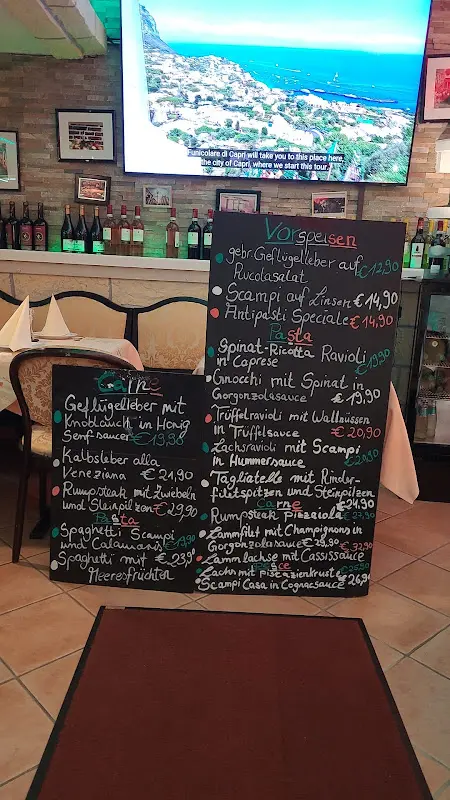 Funicolare di Capri will take you to this place here,
the city of Capri, where we start this tour.
Vorspeisen
gebr. Geflügelleber auf
Rucolasalat €12,90
Scampi auf Linsen €14,90
Antipasti Speciale €14,90
Pasta
Spinat-Ricotta Ravioli
in Caprese €19,90
Gnocchi mit Spinat in
Gorgonzolasauce €19,90
Trüffelravioli mit Wallnüssen
in Trüffelsauce €20,90
Lachsravioli mit Scampi
in Hummersauce €20,90
Tagliatelle mit Rinder-
filetspitzen und Steinpilzen
€24,90
Carne
Rumpsteak Pizzaiola €27,90
Lammfilet mit Champignons in
Gorgonzolasauce €29,90
Lammlachse mit Cassissauce €32,90
Pesce
Lachs mit pistazienkruste €25,90
Scampi Casa in Cognacsauce €26,90
Carne
Geflügelleber mit
Knoblauch in Honig
Senf-sauce €19,90
Kalbsleber alla
Veneziana €21,90
Rumpsteak mit Zwiebeln
und Steinpilzen €29,90
Pasta
Spaghetti Scampi
und Calamaris €19,90
Spaghetti mit €23,90
Meeresfrüchten